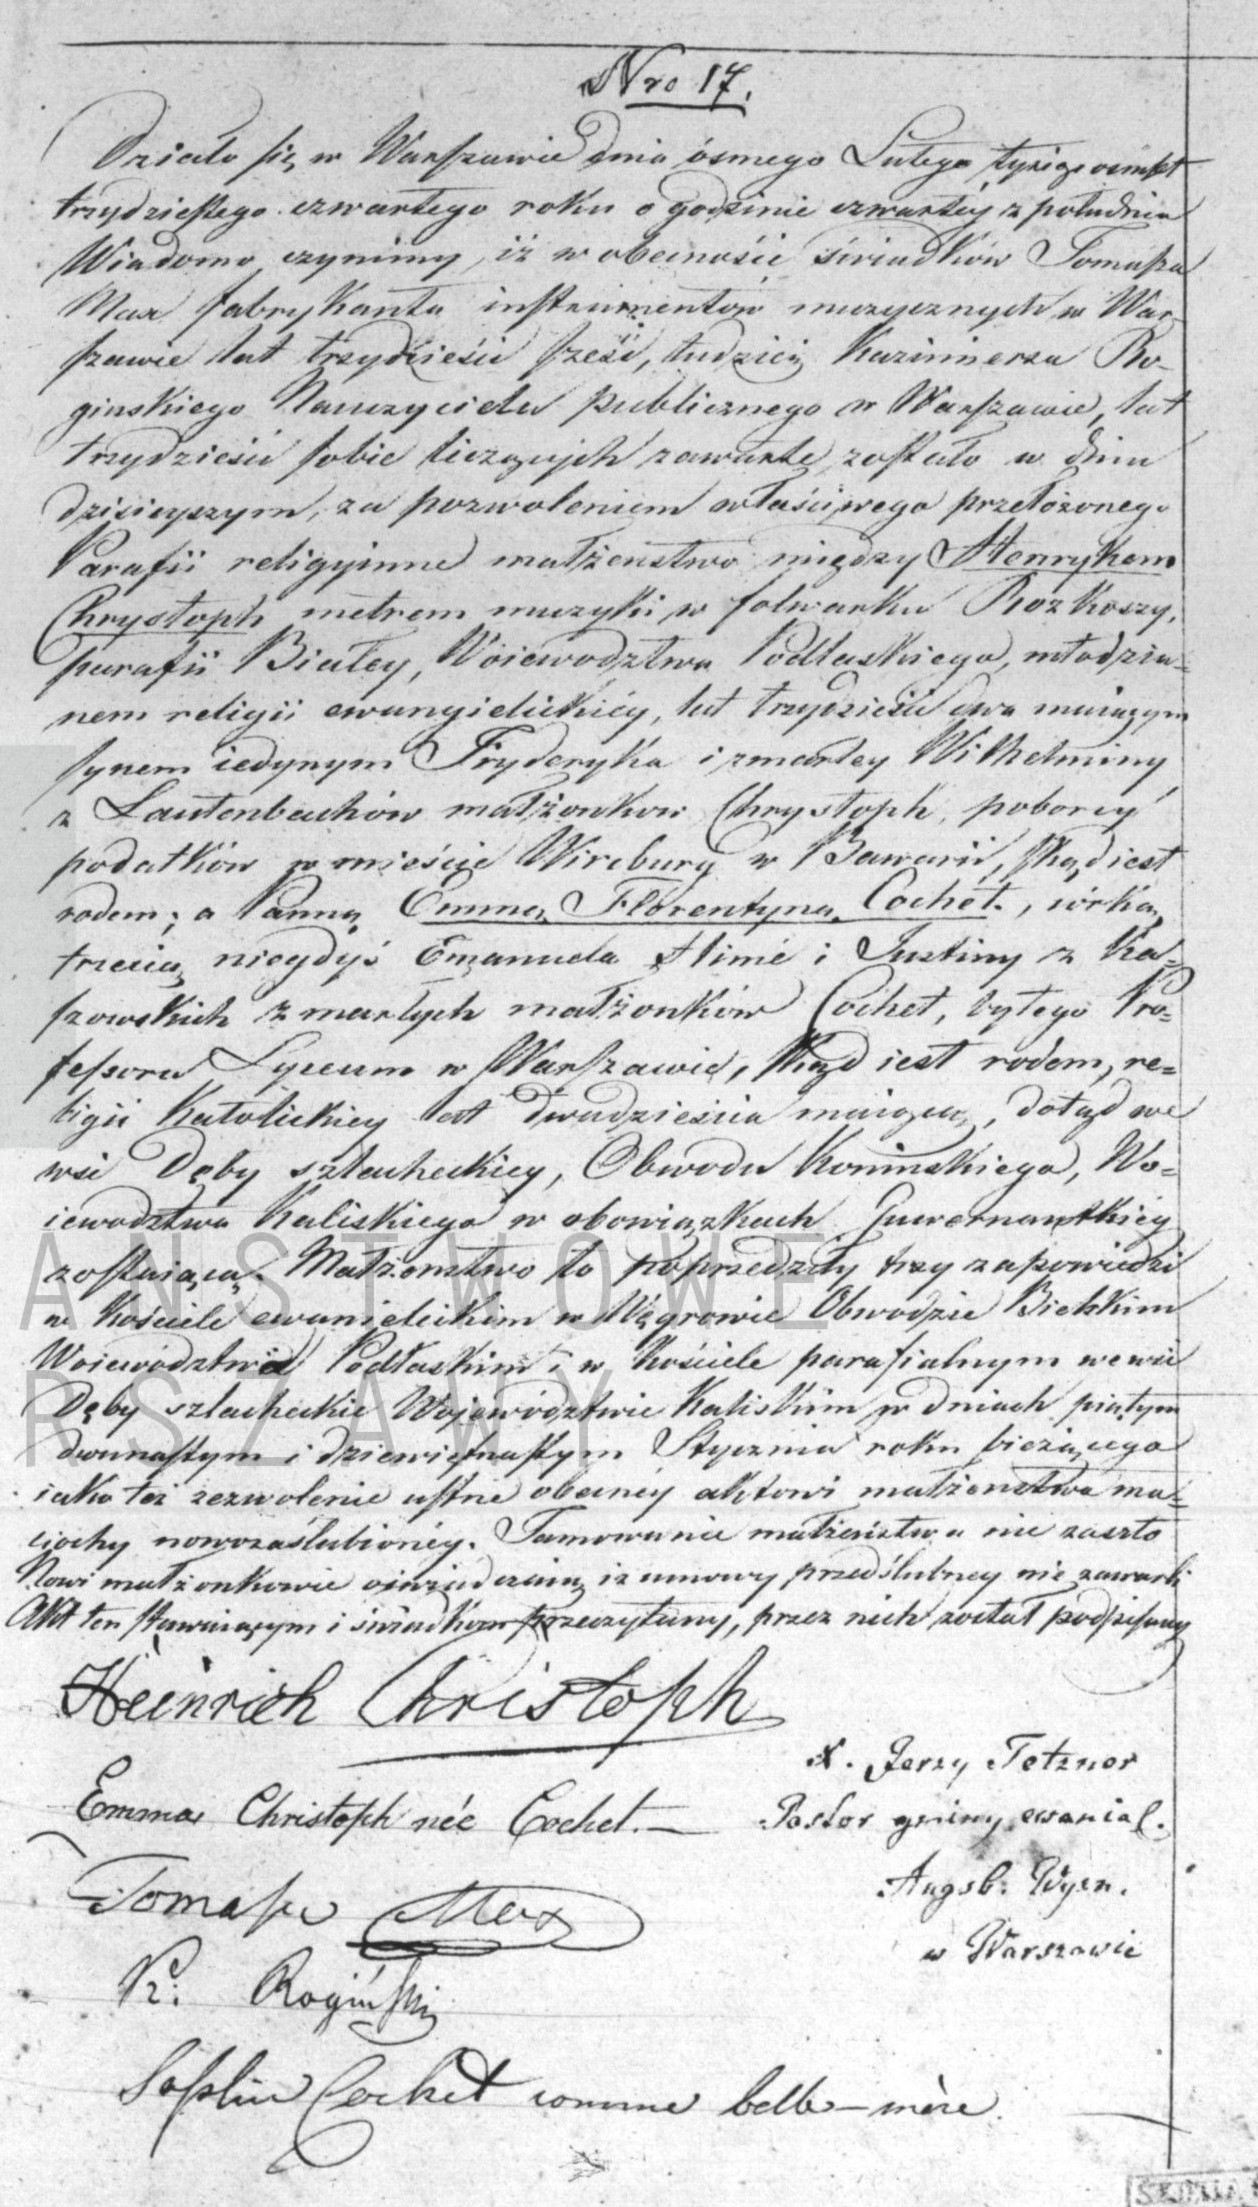 Nro 17.
Działo się w Warszawie dnia ósmego Lutego tysiąc ośmset
trzydziestego czwartego roku o godzinie czwartey z południa
Wiadomo czynimy, iż w obecności świadków Tomasza
Max fabrykanta instrumentów muzycznych w War-
szawie lat trzydzieści sześć, tudzież Kazimierza Ro-
ginskiego Nauczyciela publicznego w Warszawie, lat
trzydzieści sobie liczących zawarte zostało w dniu
dzisieyszym, za pozwoleniem właściwego przełożonego
Parafii religyinne małżeństwo między Henrykem
Chrystoph metrem muzyki w folwarku Rozkoszy,
parafii Białey, Woiewodztwa Podlaskiego, młodzia-
nem religii ewangielickiéy, lat trzydzieści dwa maiącym
synem iedynym Fryderyka i zmarłey Wilhelminy
z Lautenbachów małżonkow Chrystoph, poborcy
podatków w mieście Wircburg w Bawarii, skąd iest
rodem; a Panną Emmą Florentyną Cochet., córką
trzecią niegdyś Emanuela Aimé i Justiny z Ka-
szowskich zmarłych małżonków Cochet, byłego Pro-
fessora Lyceum w Warszawie, skąd iest rodem, re-
ligii Katolickiey lat dwadzieścia maiącą, dotąd we
wsi Dęby szlacheckiey, Obwodu Konińskiego, Wo-
iewodztwa Kaliskiego w obowiązkach Guwernantkiey
zostaiącą. Małżeństwo to poprzedziły trzy zapowiedzi
w Kościele ewanielickim w Węgrowie Obwodzie Bielskim
Woiewództwie Podlaskim i w Kościele parafialnym we wsi
Dęby szlacheckie Wojewódzstwie Kaliskim w dniach piątym
dwunastym i dziewiętnastym Stycznia roku bieżącego
iako też zezwolenie ustne obecnéy aktowi małżeństwa ma-
ciochy nowozaślubionéy. Tamowanie małżeństwa nie zaszło
Nowi małżonkowie oświadczaią iż umowy przedślubney nie zawarli
Akt ten stawaiącym i świadkom przeczytany, przez nich został podpisany
Heinrich Christoph
X. Jerzy Tetzner
Emma Christoph née Cochet.
Pastor gminy ewaniel.
Augsb. Wyzn.
Tomasz Max
w Warszawie
K. Rogiński
Cochet comme belle-mère.
ANSTWOWE
RSZAWY